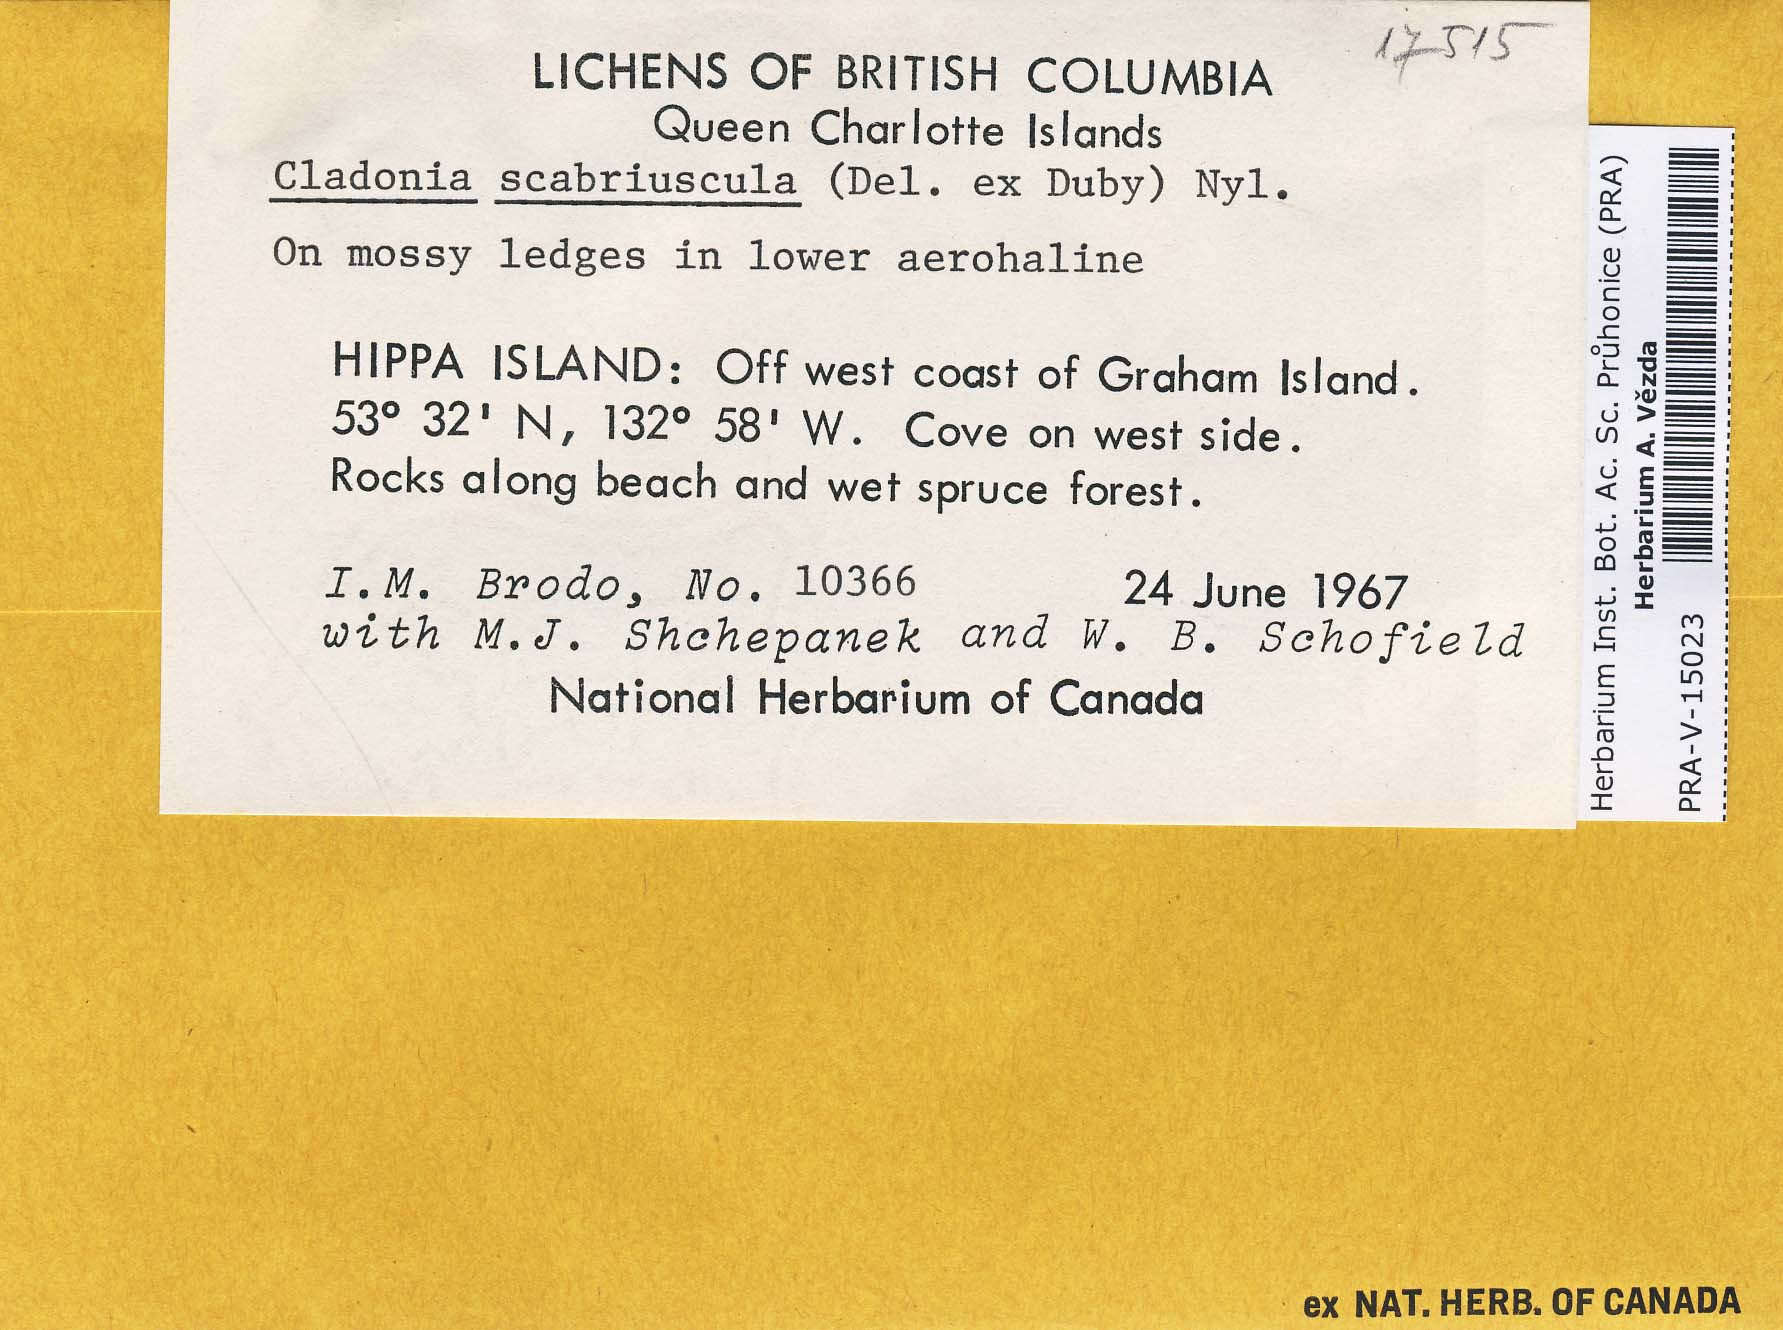 17515
LICHENS OF BRITISH COLUMBIA
Queen Charlotte Islands
Cladonia scabriuscula (Del. ex Duby) Nyl.
On mossy ledges in lower aerohaline
HIPPA ISLAND: Off west coast of Graham Island.
53° 32' N, 132° 58' W. Cove on west side.
Rocks along beach and wet spruce forest.
I.M. Brodo, No. 10366 24 June 1967
with M.J. Shchepanek and W. B. Schofield
National Herbarium of Canada
Herbarium Inst. Bot. Ac. Sc. Průhonice (PRA)
Herbarium A. Vězda
PRA-V-15023
ex NAT. HERB. OF CANADA